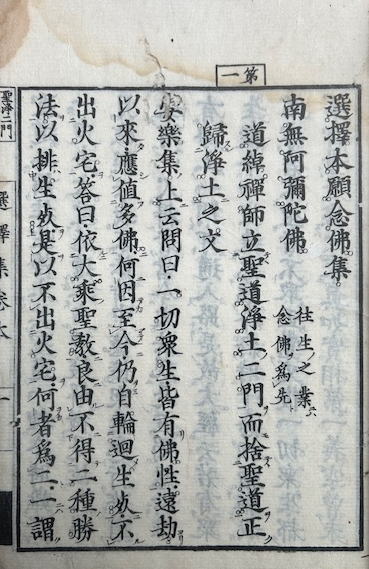 第一
選擇本願念佛集
南無阿彌陀佛
往生之業
念佛爲先
道綽禪師立聖道淨土二門而捨聖道正
歸淨土之文
安樂集上云問曰一切衆生皆有佛性遠劫
以來應値多佛何因至今仍自輪迴生死不
出火宅答曰依大乘聖教良由不得二種勝
法以排生死是以不出火宅何者爲二一謂
聖淨二門
選擇集卷本
一